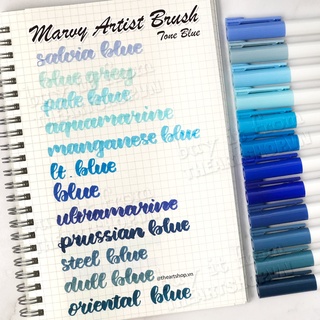 Marvy Artist Brush
Tone Blue
salvia blue
blue grey
pale blue
aquamarine
manganese blue
lt. blue
blue
ultramarine
prussian blue
steel blue
dull blue
@theartshop.vn
oriental blue